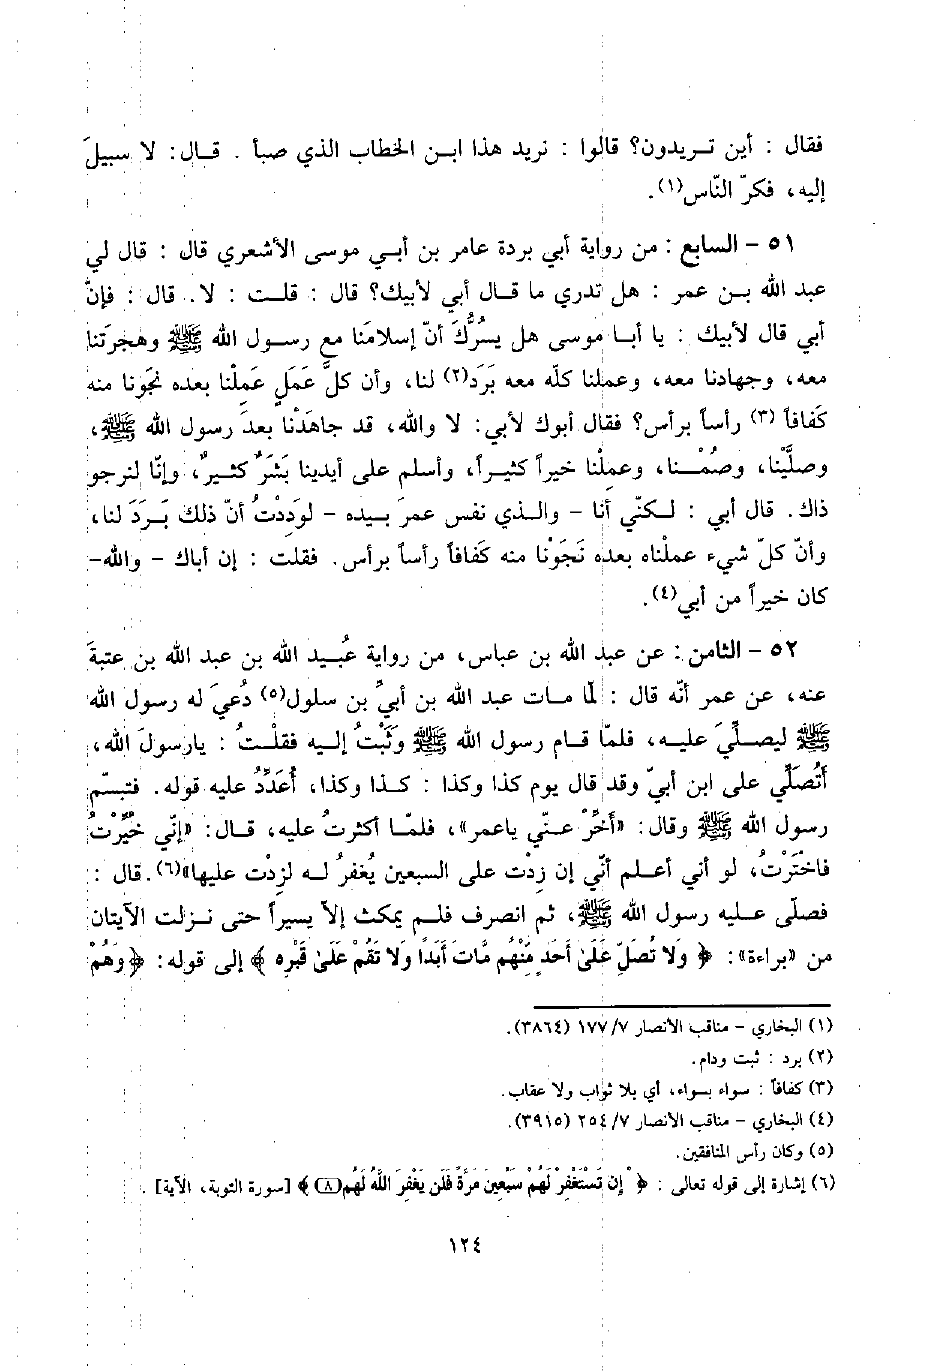 فقال : أين تـريدون؟ قالوا : نريد هذا ابـن الخطاب الذي صبأ . قـال: لا سبيلَ
إليه، فكرّ النّاس(١).
٥١ – السابع : من رواية أبي بردة عامر بن أبـي موسى الأشعري قال : قال لي
عبد الله بـن عمر : هل تدري ما قـال أبي لأبيك؟ قال : قلـت : لا. قال : فإنّ
أبي قال لأبيك : يا أبـا موسى هل يسُرُّكَ أنّ إسلامَنا مع رسـول الله ﷺ وهجرَتنا
معه، وجهادنا معه، وعملنا كلّه معه بَرَد(٢) لنا، وأن كلَّ عَمَلٍ عَمِلْنا بعده نجَونا منه
كَفافاً (٣) رأساً برأس؟ فقال أبوك لأبي: لا والله، قد جاهَدْنا بعدَ رسول الله ﷺ،
وصلَّينا، وصُمْـنا، وعمِلْنا خيراً كثيراً، وأسلم على أيدينا بَشَرٌ كثيرٌ، وإنّا لنرجو
ذاك. قال أبي : لـكنّي أنا – والـذي نفس عمرَ بـيده – لوَدِدْتُ أنّ ذلك بَـرَدَ لنا،
وأنّ كلّ شيء عملْناه بعده نَجَوْنا منه كَفافاً رأساً برأس. فقلت : إن أباك – والله–
كان خيراً من أبي(٤).
٥٢ – الثامن : عن عبد الله بن عباس، من رواية عُبـيد الله بن عبد الله بن عتبةَ
عنه، عن عمر أنّه قال : لمّا مـات عبد الله بن أبيّ بن سلول(٥) دُعيَ له رسول الله
ﷺ ليصلِّيَ عليـه، فلمّا قـام رسول الله ﷺ وَثَبْتُ إلـيه فقلْـتُ : يارسولَ الله،
أتُصَلّي على ابن أبيّ وقد قال يوم كذا وكذا : كـذا وكذا، أُعَدِّدُ عليه قوله. فتبسّم
رسول الله ﷺ وقال: «أخِّرْ عـنّي ياعمر»، فلمّـا أكثرتُ عليه، قـال: «إنّي خُيِّرْتُ
فاخْتَرْتُ، لو أني أعـلم أنّي إن زِدْت على السبعين يُغفرُ لـه لزِدْت عليها»(٦). قال :
فصلّى عليه رسول الله ﷺ، ثم انصرف فلـم يمكث إلاّ يسيراً حتى نـزلت الآيتان
من «براءة»: ﴿ وَلا تُصَلِّ عَلَىٰ أَحَدٍ مِّنْهُم مَّاتَ أَبَدًا وَلا تَقُمْ عَلَىٰ قَبْرِهِ ﴾ إلى قوله: ﴿وَهُمْ
(١) البخاري – مناقب الأنصار ١٧٧/٧ (٣٨٦٤).
(٢) برد : ثبت ودام.
(٣) كفافاً : سواء بسواء، أي بلا ثواب ولا عقاب.
(٤) البخاري – مناقب الانصار ٢٥٤/٧ (٣٩١٥).
(٥) وكان رأس المنافقين.
(٦) إشارة إلى قوله تعالى : ﴿ إِن تَسْتَغْفِرْ لَهُمْ سَبْعِينَ مَرَّةً فَلَن يَغْفِرَ اللَّهُ لَهُمْ(٨) ﴾ [سورة التوبة، الآية] .
١٢٤